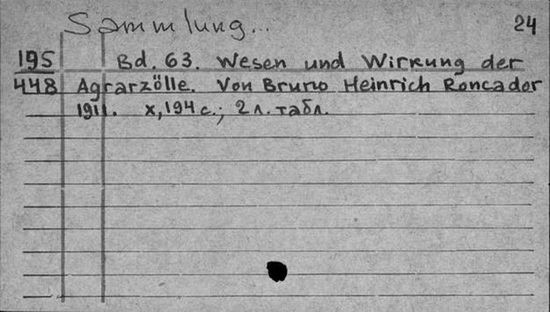 Sammlung... 24
195 Bd. 63. Wesen und Wirkung der
448 Agrarzölle. Von Bruno Heinrich Roncador
1911. X, 194 с.; 2 л. табл.